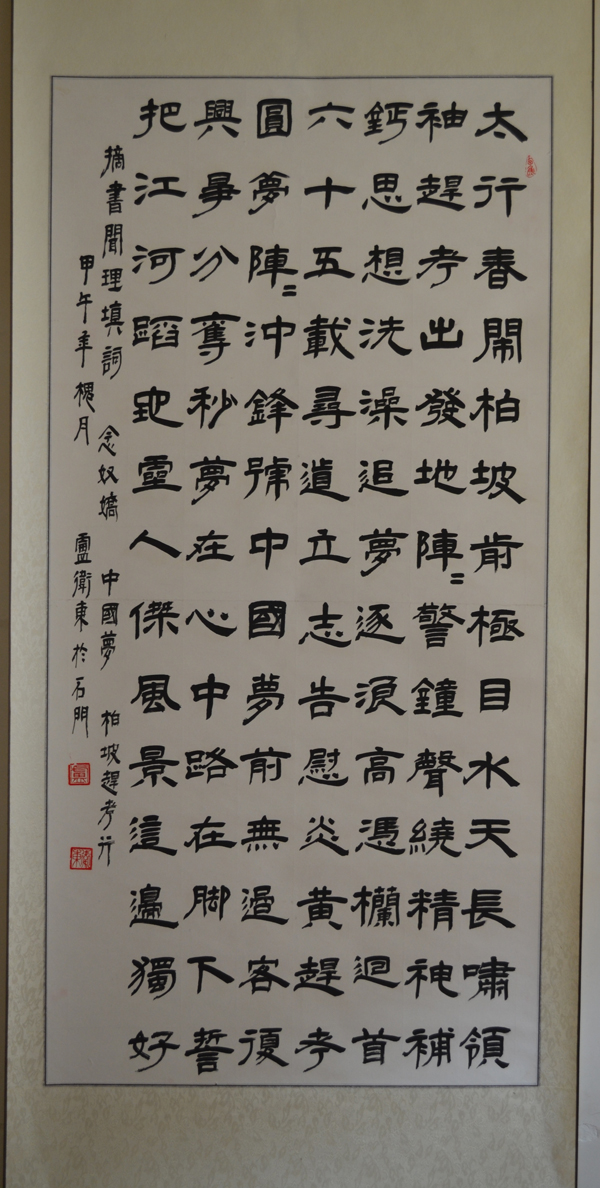 太行春鬧柏坡前極目水天長嘯領
袖趕考出發地陣〻警鐘聲繞精神補
鈣思想洗澡追夢逐浪高憑欄迴首
六十五載尋道立志告慰炎黃趕考
圓夢陣〻沖鋒號中國夢前無過客復
興爭分奪秒夢在心中路在脚下誓
把江河蹈地靈人傑風景這邊獨好
摘書聞理填詞 念奴嬌 中國夢 柏坡趕考行
甲午年槐月 盧衛東於石門